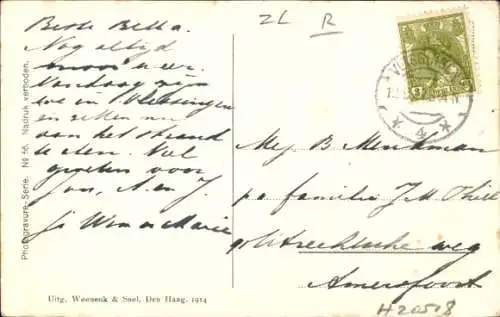 Beste Bella.
Nog altijd
mooi weer.
Vandaag zijn
we in Vlissingen
en zitten nu
aan het strand
te eten. Veel
groeten voor
Jan, A. en J.
Wim en Marie
ZL R
Mej. B. Menkman
p/a familie J. M.
Utrechtsche weg
Amersfoort
H20518
VLISSINGEN
4
Photogravure-Serie. No 46. Nadruk verboden.
Uitg. Weenenk & Snel, Den Haag. 1914